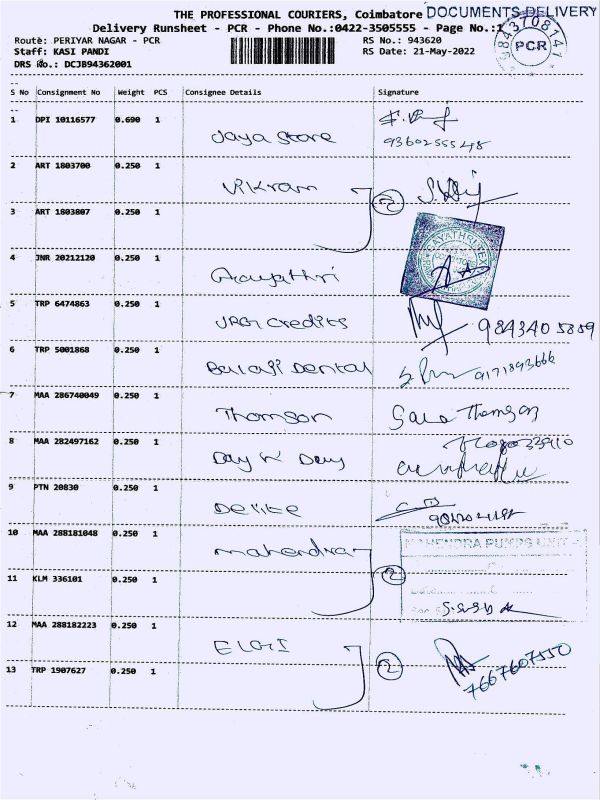 THE PROFESSIONAL COURIERS, Coimbatore DOCUMENTS DELIVERY
Delivery Runsheet - PCR - Phone No.:0422-3505555 - Page No.:1
Route: PERIYAR NAGAR - PCR RS No.: 943620
Staff: KASI PANDI RS Date: 21-May-2022
DRS No.: DCJB94362001
9843708147
PCR
S No Consignment No Weight PCS Consignee Details Signature
1 DPI 10116577 0.690 1 Jaya Store
9360255548
2 ART 1803700 0.250 1 Vikram 2
3 ART 1803807 0.250 1
4 JNR 20212120 0.250 1 Gayathri
5 TRP 6474863 0.250 1 JRG Credits 9843405889
6 TRP 5001868 0.250 1 Balaji Dental 9171893666
7 MAA 286740049 0.250 1 Thomson Sara Thomson
8 MAA 282497162 0.250 1 Day n Day
9 PTN 20830 0.250 1 Delite
10 MAA 288181048 0.250 1 Mahendra 2
MAHENDRA PUMPS UNIT-
11 KLM 336101 0.250 1
12 MAA 288182223 0.250 1 ELGI 2
7667607550
13 TRP 1907627 0.250 1